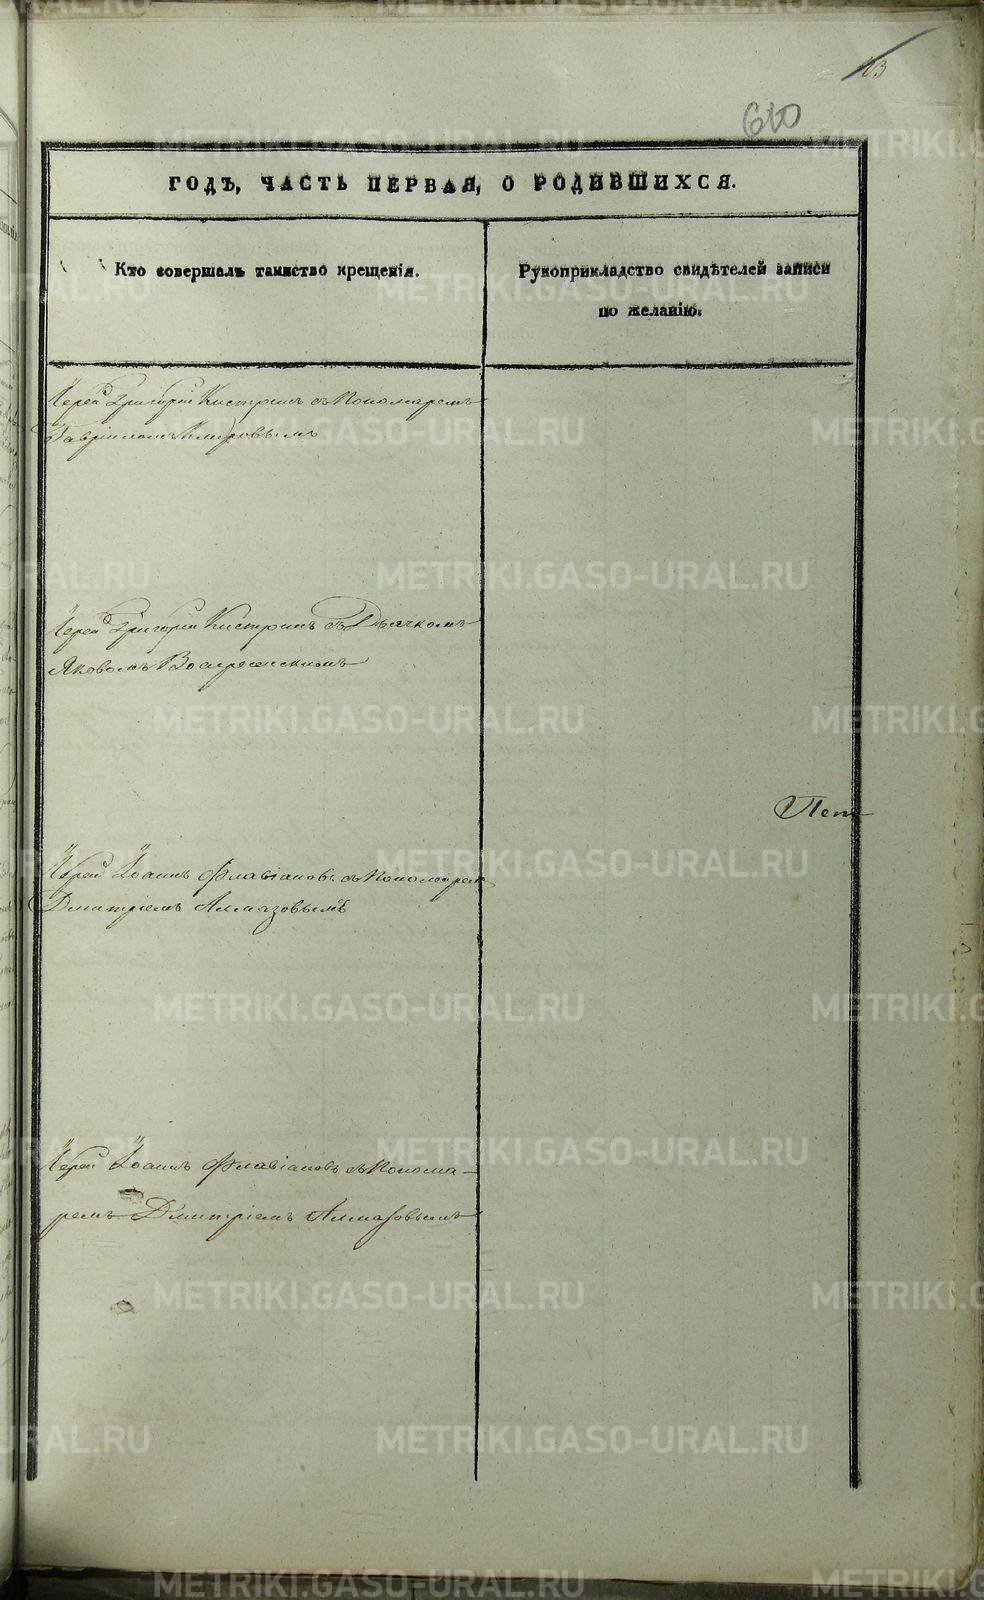 13
610
ГОДЪ, ЧАСТЬ ПЕРВАЯ, О РОДИВШИХСЯ.
Кто совершалъ таинство крещенія.
Рукоприкладство свидѣтелей записи
по желанію.
Іерей Григорій съ Пономаремъ
Гавріиломъ
Іерей Григорій съ Дьячкомъ
Яковомъ Воскресенскимъ
Іерей Іоаннъ Флавіановъ съ Пономаремъ
Дмитріемъ Алмазовымъ
Іерей Іоаннъ Флавіановъ съ Понома-
ремъ Дмитріемъ Алмазовымъ
METRIKI.GASO-URAL.RU